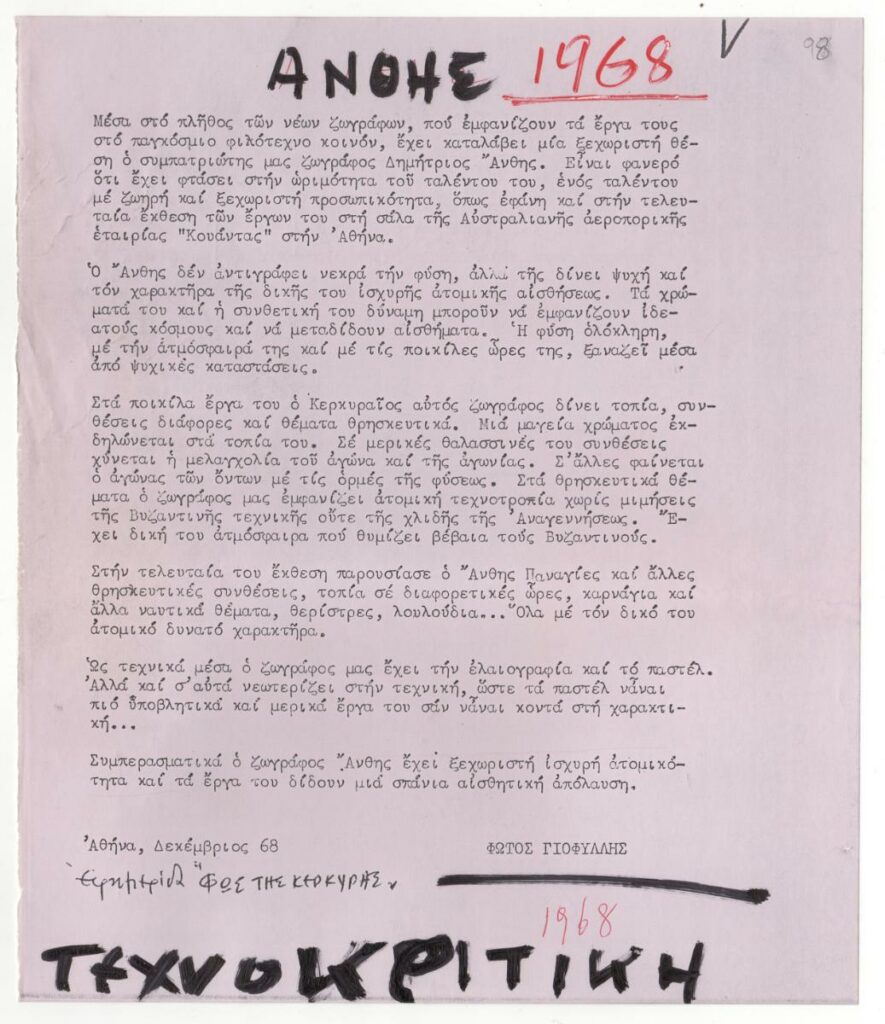 98
ΑΝΘΗΣ 1968
Μέσα στό πλῆθος τῶν νέων ζωγράφων, πού ἐμφανίζουν τά ἔργα τους
στό παγκόσμιο φιλότεχνο κοινόν, ἔχει καταλάβει μία ξεχωριστή θέ-
ση ὁ συμπατριώτης μας ζωγράφος Δημήτριος Ἄνθης. Εἶναι φανερό
ὅτι ἔχει φτάσει στήν ὡριμότητα τοῦ ταλέντου του, ἑνός ταλέντου
μέ ζωηρή καί ξεχωριστή προσωπικότητα, ὅπως ἐφάνη καί στήν τελευ-
ταία ἔκθεση τῶν ἔργων του στή σάλα τῆς Αὐστραλιανῆς ἀεροπορικῆς
ἑταιρίας "Κουάντας" στήν Ἀθήνα.
Ὁ Ἄνθης δέν ἀντιγράφει νεκρά τήν φύση, ἀλλά τῆς δίνει ψυχή καί
τόν χαρακτῆρα τῆς δικῆς του ἰσχυρῆς ἀτομικῆς αἰσθήσεως. Τά χρώ-
ματά του καί ἡ συνθετική του δύναμη μποροῦν νά ἐμφανίζουν ἰδε-
ατούς κόσμους καί νά μεταδίδουν αἰσθήματα. Ἡ φύση ὁλόκληρη,
μέ τήν ἀτμόσφαιρά της καί μέ τίς ποικίλες ὧρες της, ξαναζεῖ μέσα
ἀπό ψυχικές καταστάσεις.
Στά ποικίλα ἔργα του ὁ Κερκυραῖος αὐτός ζωγράφος δίνει τοπία, συν-
θέσεις διάφορες καί θέματα θρησκευτικά. Μιά μαγεία χρώματος ἐκ-
δηλώνεται στά τοπία του. Σέ μερικές θαλασσινές του συνθέσεις
χύνεται ἡ μελαγχολία τοῦ ἀγώνα καί τῆς ἀγωνίας. Σ'ἄλλες φαίνεται
ὁ ἀγώνας τῶν ὄντων μέ τίς ὁρμές τῆς φύσεως. Στά θρησκευτικά θέ-
ματα ὁ ζωγράφος μας ἐμφανίζει ἀτομική τεχνοτροπία χωρίς μιμήσεις
τῆς Βυζαντινῆς τεχνικῆς οὔτε τῆς χλιδῆς τῆς Ἀναγεννήσεως. Ἔ-
χει δική του ἀτμόσφαιρα πού θυμίζει βέβαια τούς Βυζαντινούς.
Στήν τελευταία του ἔκθεση παρουσίασε ὁ Ἄνθης Παναγίες καί ἄλλες
θρησκευτικές συνθέσεις, τοπία σέ διαφορετικές ὧρες, καρνάγια καί
ἄλλα ναυτικά θέματα, θερίστρες, λουλούδια... Ὅλα μέ τόν δικό του
ἀτομικό δυνατό χαρακτῆρα.
Ὡς τεχνικά μέσα ὁ ζωγράφος μας ἔχει τήν ἐλαιογραφία καί τό παστέλ.
Ἀλλά καί σ'αὐτά νεωτερίζει στήν τεχνική, ὥστε τά παστέλ νἆναι
πιό ὑποβλητικά καί μερικά ἔργα του σάν νἆναι κοντά στή χαρακτι-
κή...
Συμπερασματικά ὁ ζωγράφος Ἄνθης ἔχει ξεχωριστή ἰσχυρή ἀτομικό-
τητα καί τά ἔργα του δίδουν μιά σπάνια αἰσθητική ἀπόλαυση.
Ἀθήνα, Δεκέμβριος 68 ΦΩΤΟΣ ΓΙΟΦΥΛΛΗΣ
Ἐφημερίδα "ΦΩΣ ΤΗΣ ΚΕΡΚΥΡΑΣ"
1968
ΤΕΧΝΟΚΡΙΤΙΚΗ